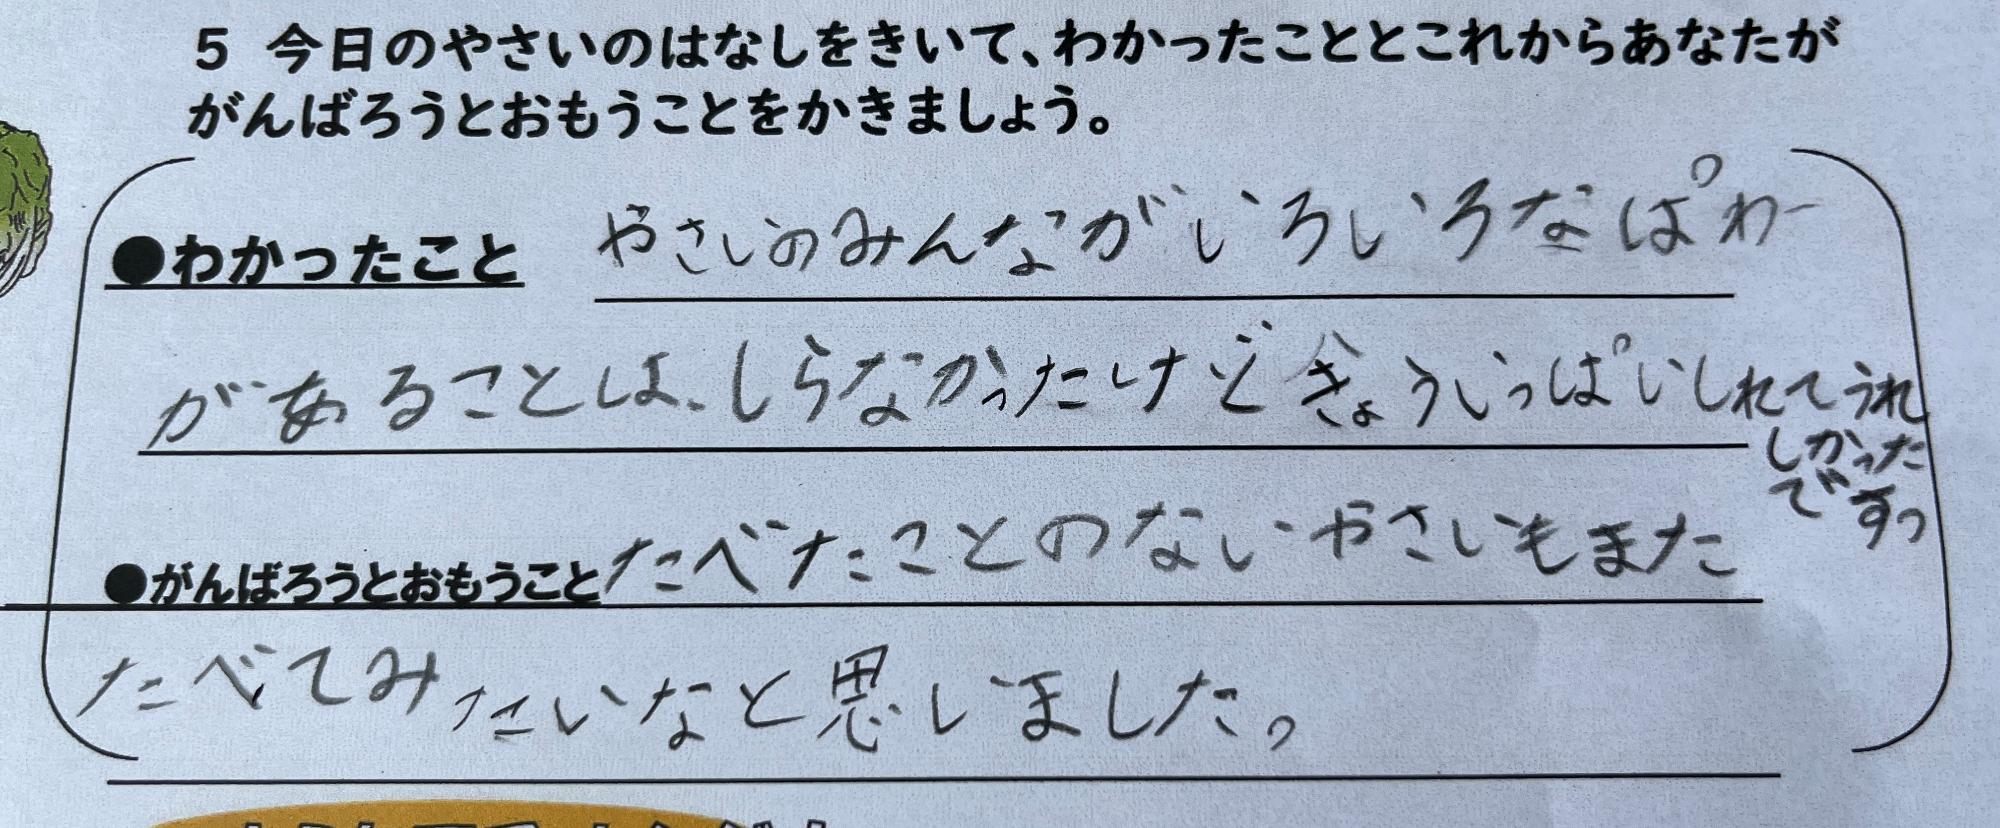 5 今日のやさいのはなしをきいて、わかったこととこれからあなたが
がんばろうとおもうことをかきましょう。
●わかったこと やさいのみんながいろいろなぱわー
があることは、しらなかったけどきょういっぱいしれてうれ
しかった
です。
●がんばろうとおもうこと たべたことのないやさいもまた
たべてみたいなと思いました。